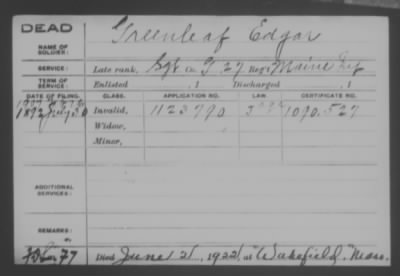 DEAD
NAME OF SOLDIER: Greenleaf Edgar
SERVICE: Late rank, Sgt Co. G, 27 Reg't Maine Inf
TERM OF SERVICE: Enlisted , 1 Discharged , 1
DATE OF FILING. CLASS. APPLICATION NO. LAW. CERTIFICATE NO.
1892 July 30 Invalid, 1123790 1090.527
Widow,
Minor,
ADDITIONAL SERVICES:
REMARKS:
Died June 21, 1922, at Wakefield, Mass.